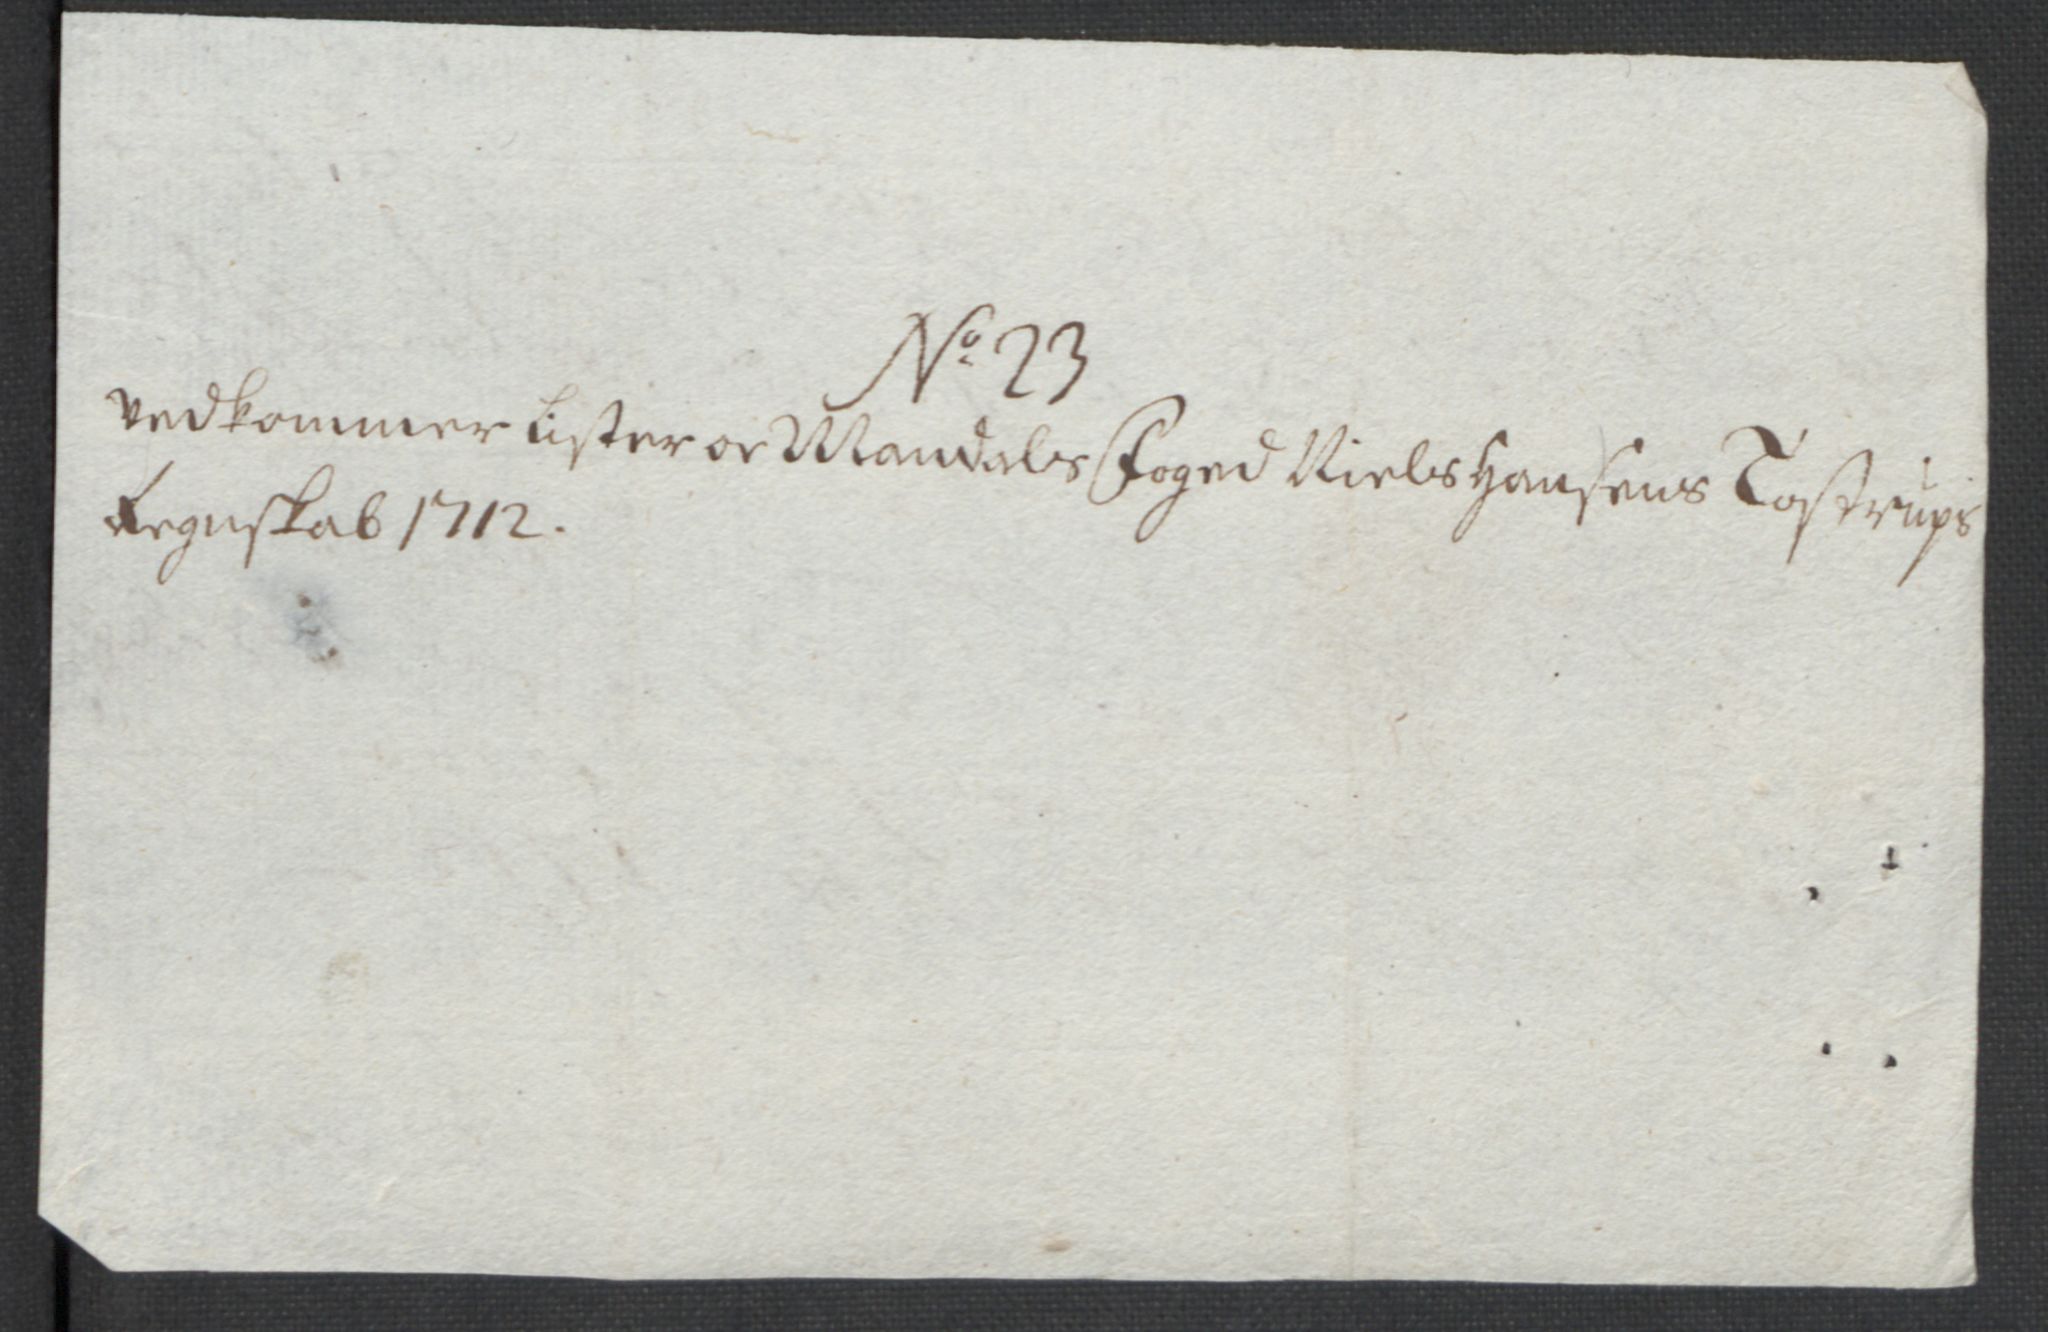 No 23
Vedkommer Lister oc Mandals Foged Niels Hansens Tostrups
Regnskab 1712.